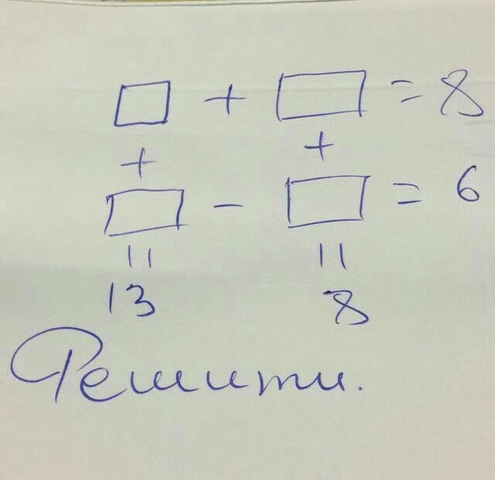 □ + □ = 8
+ +
□ - □ = 6
|| ||
13 8
Решити.